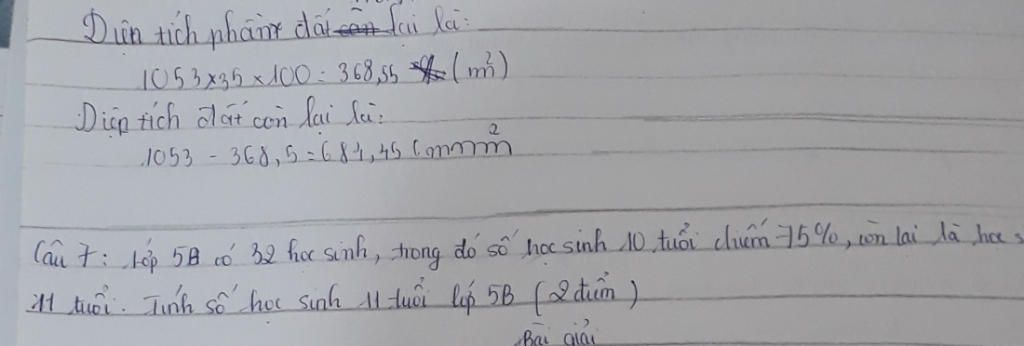 Diện tích phần đất lại là:
1053 x 35 x 100 = 368,55 (m²)
Diện tích đất còn lại là:
1053 - 368,5 = 684,45 (m²
Câu 7: Lớp 5B có 32 học sinh, trong đó số học sinh 10 tuổi chiếm 75%, còn lại là học s
11 tuổi. Tính số học sinh 11 tuổi lớp 5B (2 điểm)
Bài giải